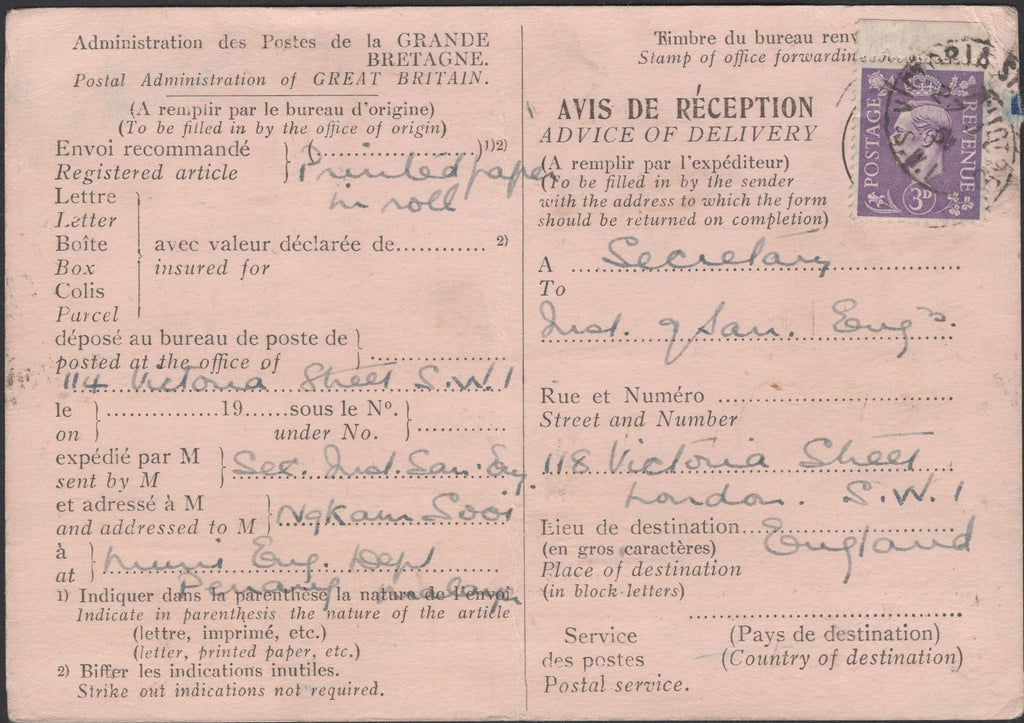 Administration des Postes de la GRANDE
BRETAGNE.
Postal Administration of GREAT BRITAIN.
(A remplir par le bureau d'origine)
(To be filled in by the office of origin)
Envoi recommandé
Registered article
(....................)1)2)
Printed paper
in roll
Lettre
Letter
Boîte
Box
Colis
Parcel
avec valeur déclarée de............. 2)
insured for
déposé au bureau de poste de
posted at the office of
114 Victoria Street S.W.1
le
on
................19......sous le No.
under No.
expédié par M
sent by M
Sec. Inst. San. Eng.
et adressé à M
and addressed to M
Ng Kam Sooi
à
at
Muni Eng. Dept
Penang
1) Indiquer dans la parenthèse la nature de l'envoi
Indicate in parenthesis the nature of the article
(lettre, imprimé, etc.)
(letter, printed paper, etc.)
2) Biffer les indications inutiles.
Strike out indications not required.
Timbre du bureau renv
Stamp of office forwarding
POSTAGE
REVENUE
3D
AVIS DE RÉCEPTION
ADVICE OF DELIVERY
(A remplir par l'expéditeur)
(To be filled in by the sender
with the address to which the form
should be returned on completion)
A
To
Secretary
Inst. of San. Engrs.
Rue et Numéro
Street and Number
118 Victoria Street
London. S.W.1
Lieu de destination
(en gros caractères)
England
Place of destination
(in block letters)
Service
des postes
Postal service.
(Pays de destination)
(Country of destination)